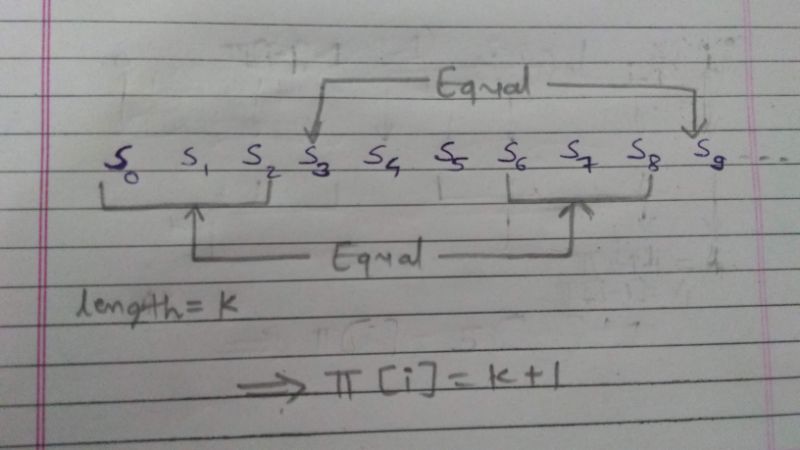 Equal
S0 S1 S2 S3 S4 S5 S6 S7 S8 S9 ...
Equal
length = k
⇒ π [i] = k + 1